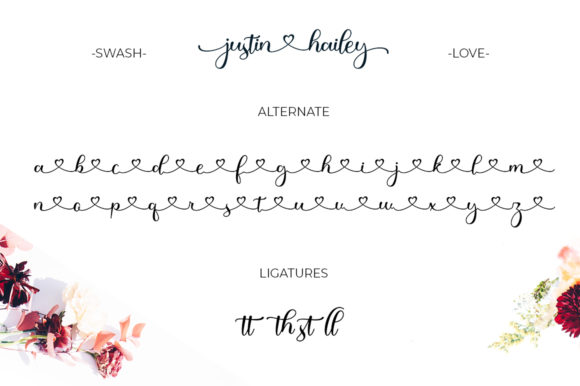 justin hailey
-SWASH- -LOVE-
ALTERNATE
a b c d e f g h i j k l m
n o p q r s t u v w x y z
LIGATURES
tt th st ll